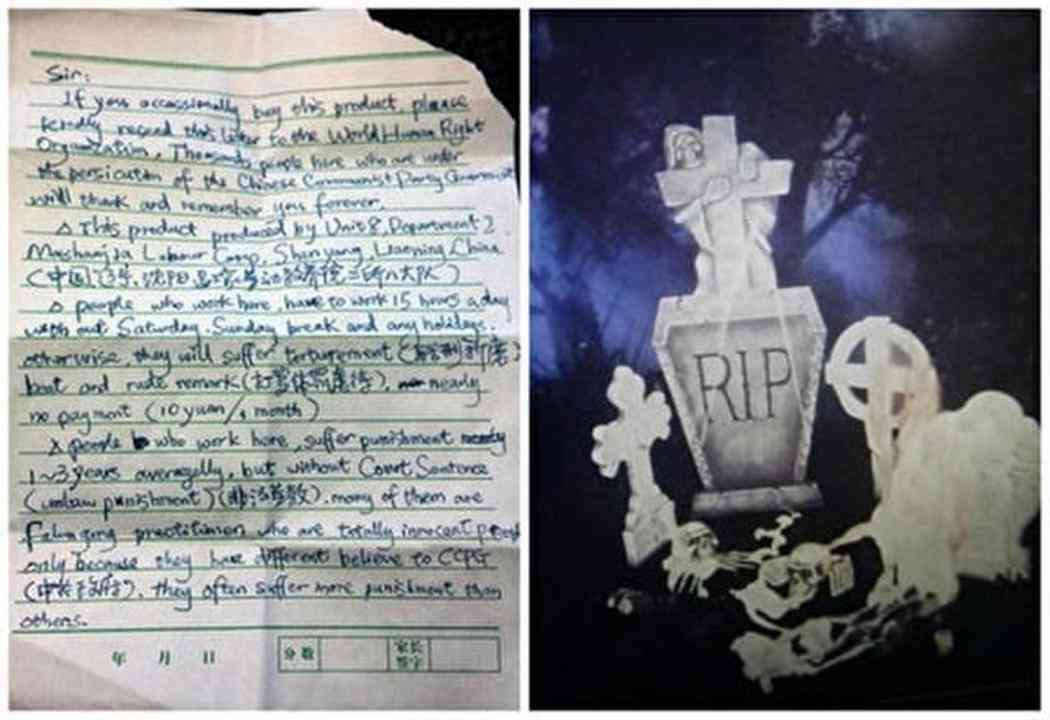 Sir:
If you occassionally buy this product, please
kindly resend this letter to the World Human Right
Organization. Thousands people here who are under
the persicution of the Chinese Communist Party Government
will thank and remember you forever.
△ This product produced by Unit 8, Department 2
Mashanjia Labour Camp, Shenyang, Liaoning, China
(中国辽宁, 沈阳马三家劳动教养院二所八大队)
△ people who work here, have to work 15 hours a day
with out Saturday, Sunday break and any holidays.
otherwise, they will suffer torturement
beat and rude remark (打骂体罚虐待), nearly
no payment (10 yuan/1 month)
△ people who work here, suffer punishment nearly
1~3 years averagelly, but without Court Sentence
(unlaw punishment) (非法劳教). many of them are
Falun gong practitioner, who are totally innocent people
only because they have different believe to CCPG
they often suffer more punishment than
others.
年 月 日 分数 家长签字
RIP